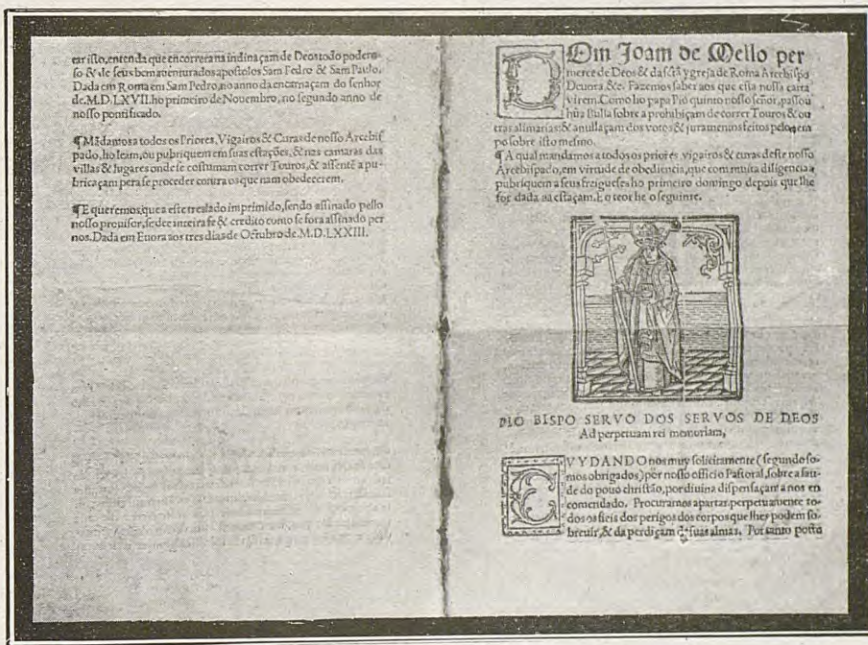 tar isto, entenda que encorrera na indinaçam de Deos todo podero-
so & de seus bem auenturados apostolos Sam Pedro & Sam Paulo.
Dada em Roma em Sam Pedro, no anno da encarnaçam do senhor
de M.D.LXVII. ho primeiro de Nouembro, no segundo anno de
nosso pontificado.
¶ Mãdamos a todos os Priores, Vigairos & Curas de nosso Arcebis
pado, ho leam, ou pubriquem em suas estações, & nas camaras das
villas & lugares onde se costumam correr Touros, & assentẽ a pu-
bricaçam pera se proceder contra os que nam obedecerem.
¶ E queremos, que a este treslado imprimido, sendo assinado pello
nosso prouisor, se dee inteira fe & credito como se fora assinado per
nos. Dada em Euora aos tres dias de Octubro de M.D.LXXIII.
Dom Joam de Mello per
merce de Deos & da sctã ygreja de Roma Arcebispo
Deuora, &c. Fazemos saber aos que esta nossa carta
virem. Como ho papa Pio quinto nosso señor, passou
hũa Bulla sobre a prohibiçam de correr Touros & ou
tras alimarias: & anullaçam dos votos & juramentos feitos pelo tem
po sobre isto mesmo.
¶ A qual mandamos a todos os priores, vigairos & curas deste nosso
Arcebispado, em virtude de obediencia, que com muita diligencia a
pubriquem a seus fregueses ho primeiro domingo depois que lhe
for dada na estaçam. E o teor he o seguinte.
PIO BISPO SERVO DOS SERVOS DE DEOS
Ad perpetuam rei memoriam,
CVYDANDO nos muy solicitamente (segundo so-
mos obrigados) por nosso officio Pastoral, sobre a sau-
de do pouo christão, por diuina dispensaçam a nos en
comendado. Procuramos apartar perpetuamente to-
dos os fieis dos perigos dos corpos que lhes podem so-
breuir, & da perdiçam de suas almas. Por tanto posto